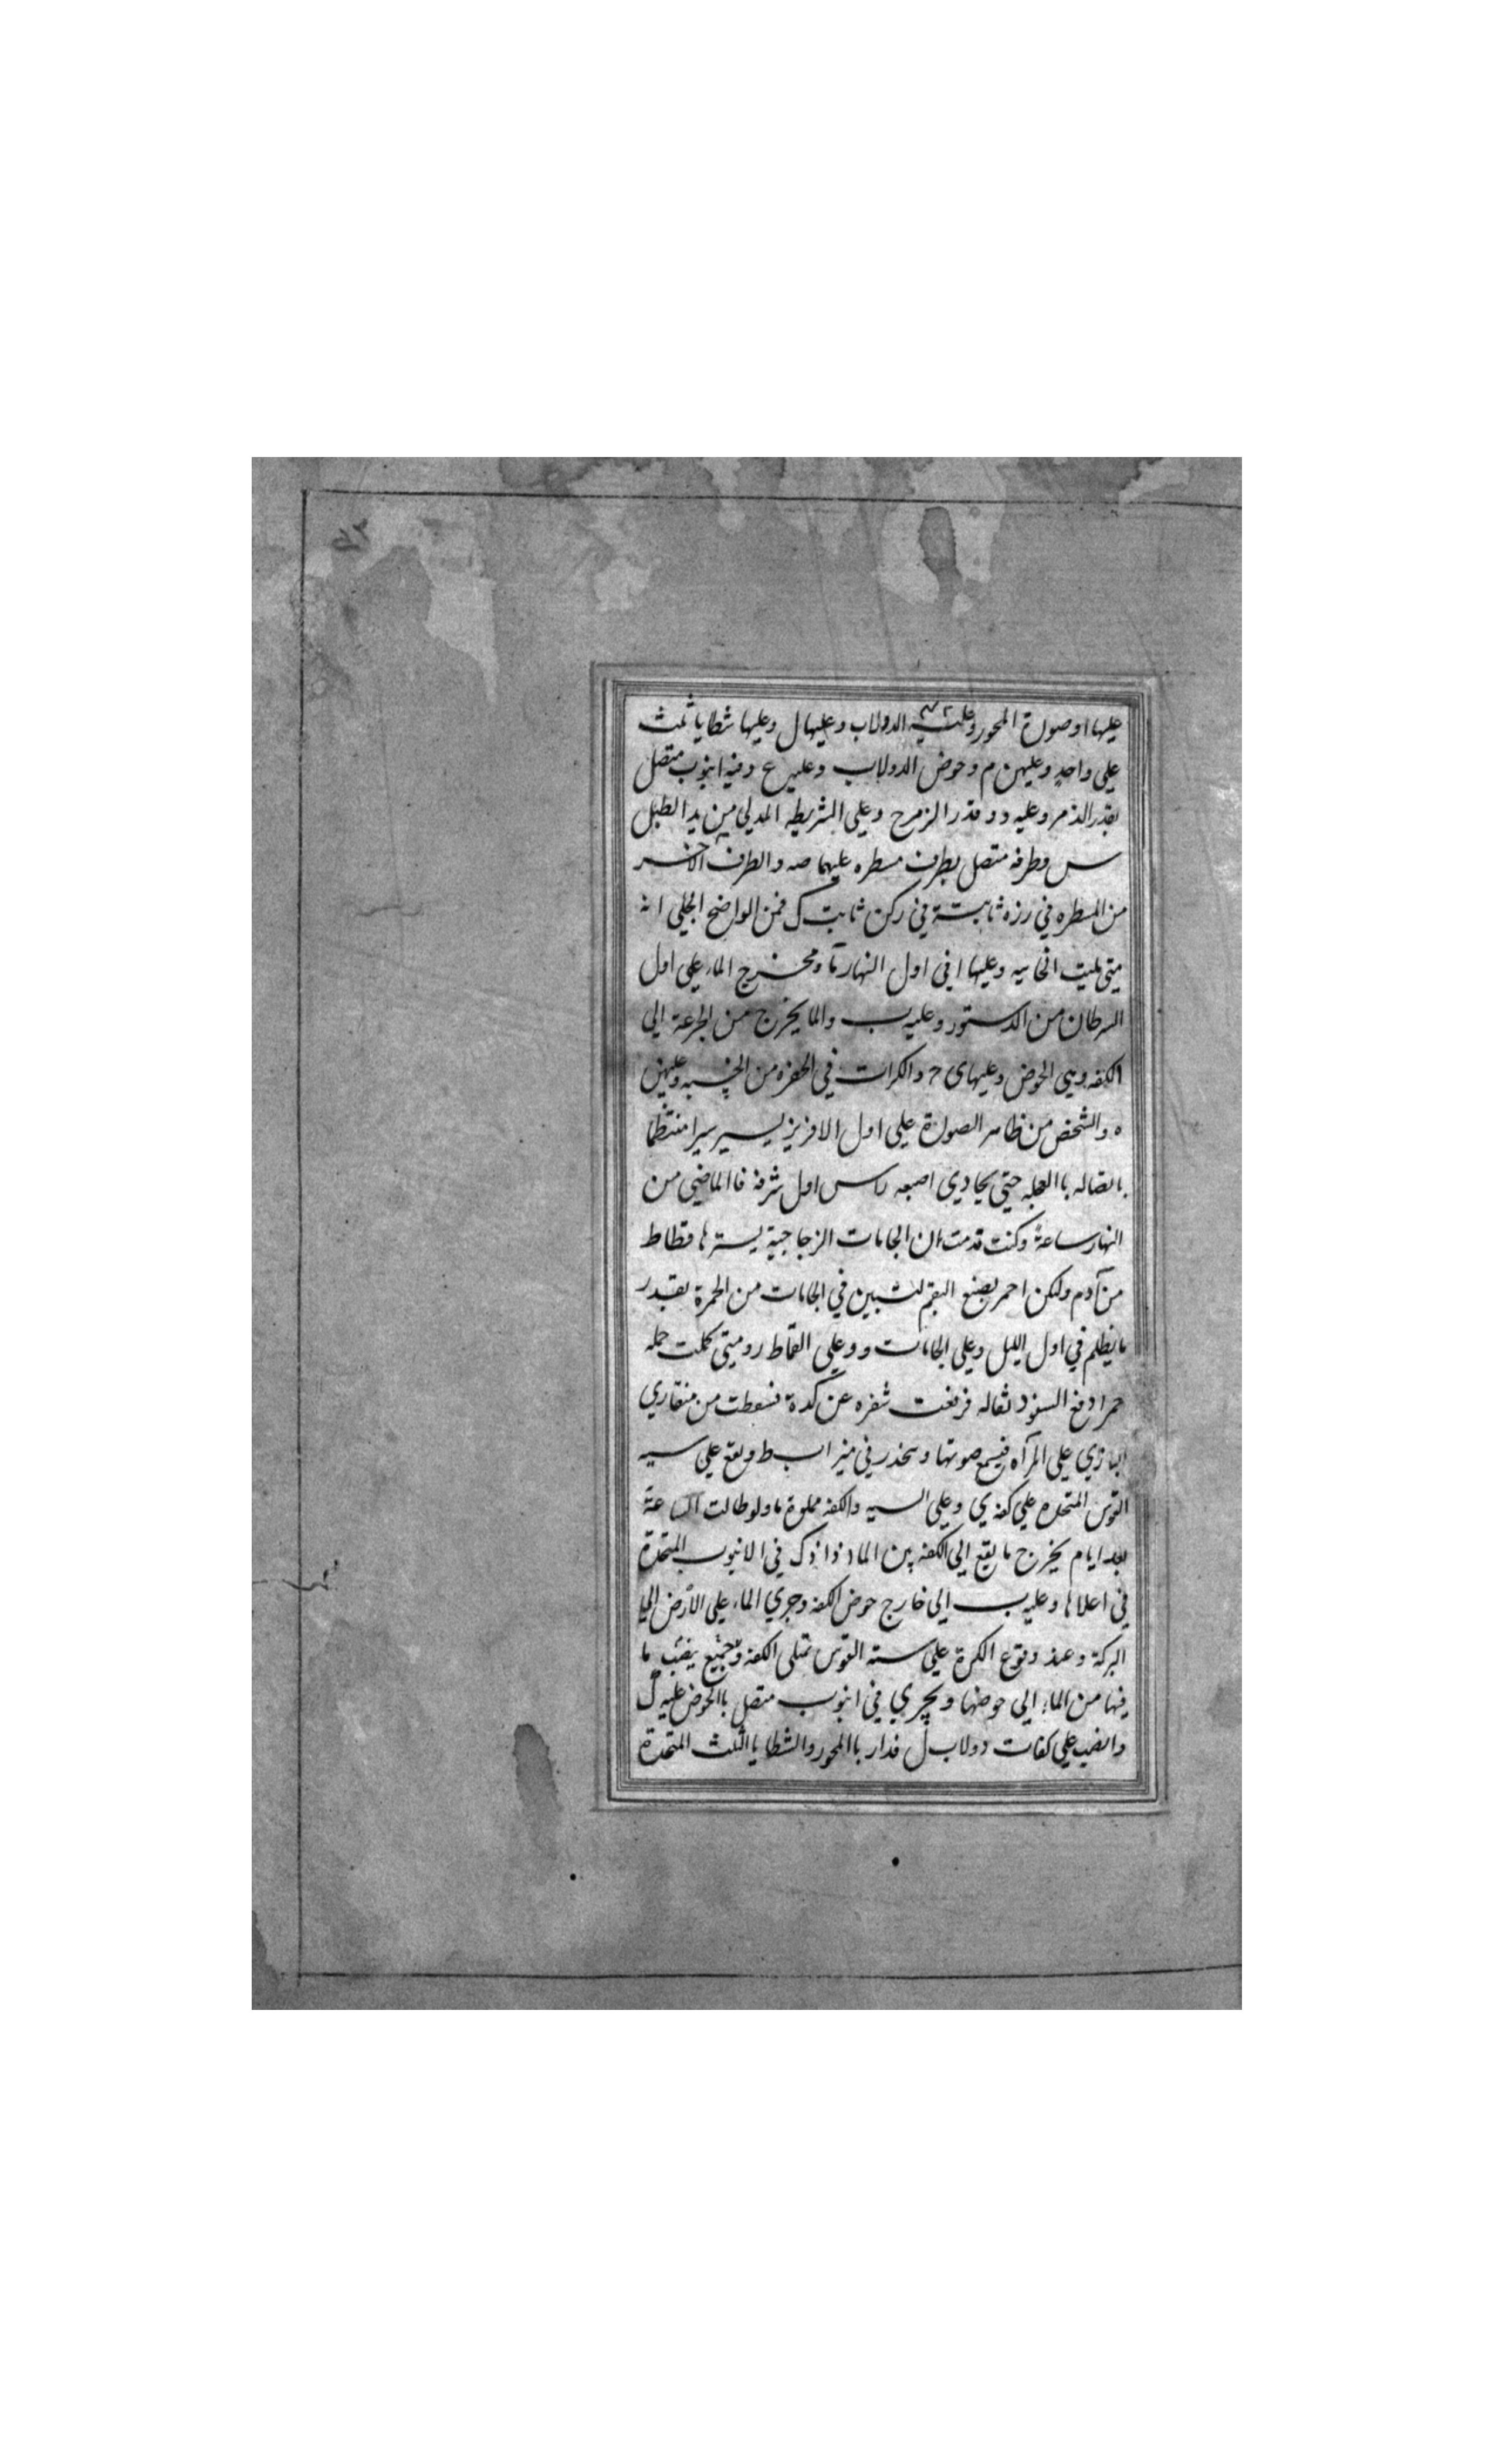 عليها اوصورة المحور وعليه الدولاب وعليها ل وعليها شظايا ثلث
علي واحد وعليهن م وحوض الدولاب وعليه ع وفيه انبوب متصل
بقدر الذمر وعليه د وقدر الزمرح وعلي الشريطه المدلي من يد الطبل
س وطرفه متصل بطرف مسطره عليها صه والطرف الاخر
من المسطره في رزه ثابتة في ركن ثابت ك فمن الواضح الجلي انه
متي مليت الخابيه وعليها ا في اول النهار مآ ومخرج الماء علي اول
السرطان من الدستور وعليه ب والما يخرج من الجزعة الي
الكفه وهي الحوض وعليهای ح والكرات في الحفره من الخشبه وعليهن
ه والشخص من ظاهر الصورة علي اول الافريز يسير سيرا منتظما
باتصاله باالعجله حتي يحادي اصبعه راس اول شرفه فاالماضي من
النهار ساعة وكنت قدمت ان الجامات الزجاجية يسترها قطاط
من آدم ولكن احمر بصبغ البقم لتبين في الجامات من الحمرة بقدر
ما يظلم في اول الليل وعلي الجامات و وعلي القماط ر ومتي كملت جمله
حمرا دفع السفود ثقاله فرفعت شفره عن كدة فسقطت من منقاري
البازي علي المرآه فيسمع صوتها وينحدر في ميزاب ط ويقع علي سيه
القوس المتحده علي كفه ي وعلي السيه والكفه مملوة ما ولو طالت الساعة
بعد ايام يخرج ما يقع الي الكفه من الما اذ ذاك في الانبوب المتحدة
في اعلاها وعليه ب الي خارج حوض الكفه وجري الماء علي الأرض الي
البركة وعند وقوع الكرة علي سته القوس تمتلي الكفه وجميع ينصب ما
فيها من الماء الي حوضها ويجري في انبوب متصل باالحوض عليه ك
وانصب علي كفات دولاب ل فدار باالمحور والشظايا الثلث المتحدة